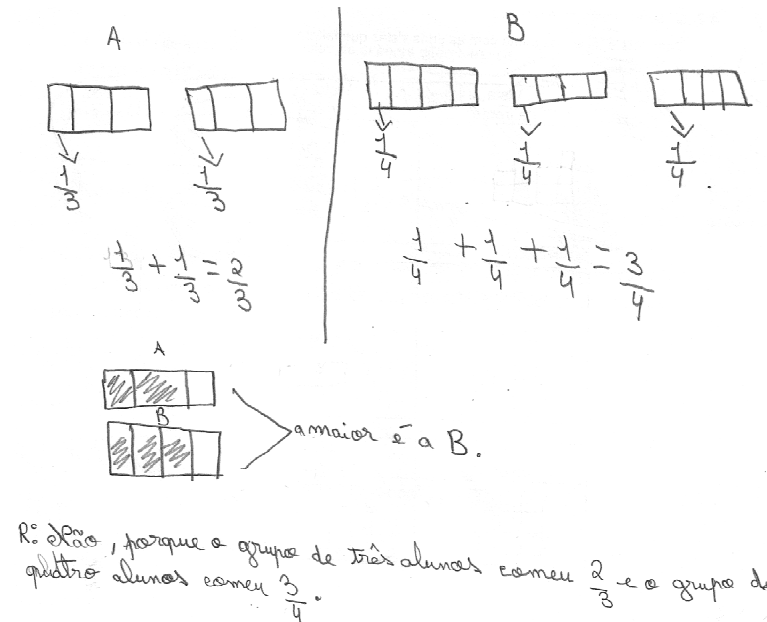 A
B
1/3 1/3
1/4 1/4 1/4.
1/3 + 1/3 = 2/3
1/4 + 1/4 + 1/4 = 3/4
A
B
a maior é a B.
R: Não, porque o grupo de três alunos comeu 2/3 e o grupo d
quatro alunos comeu 3/4.